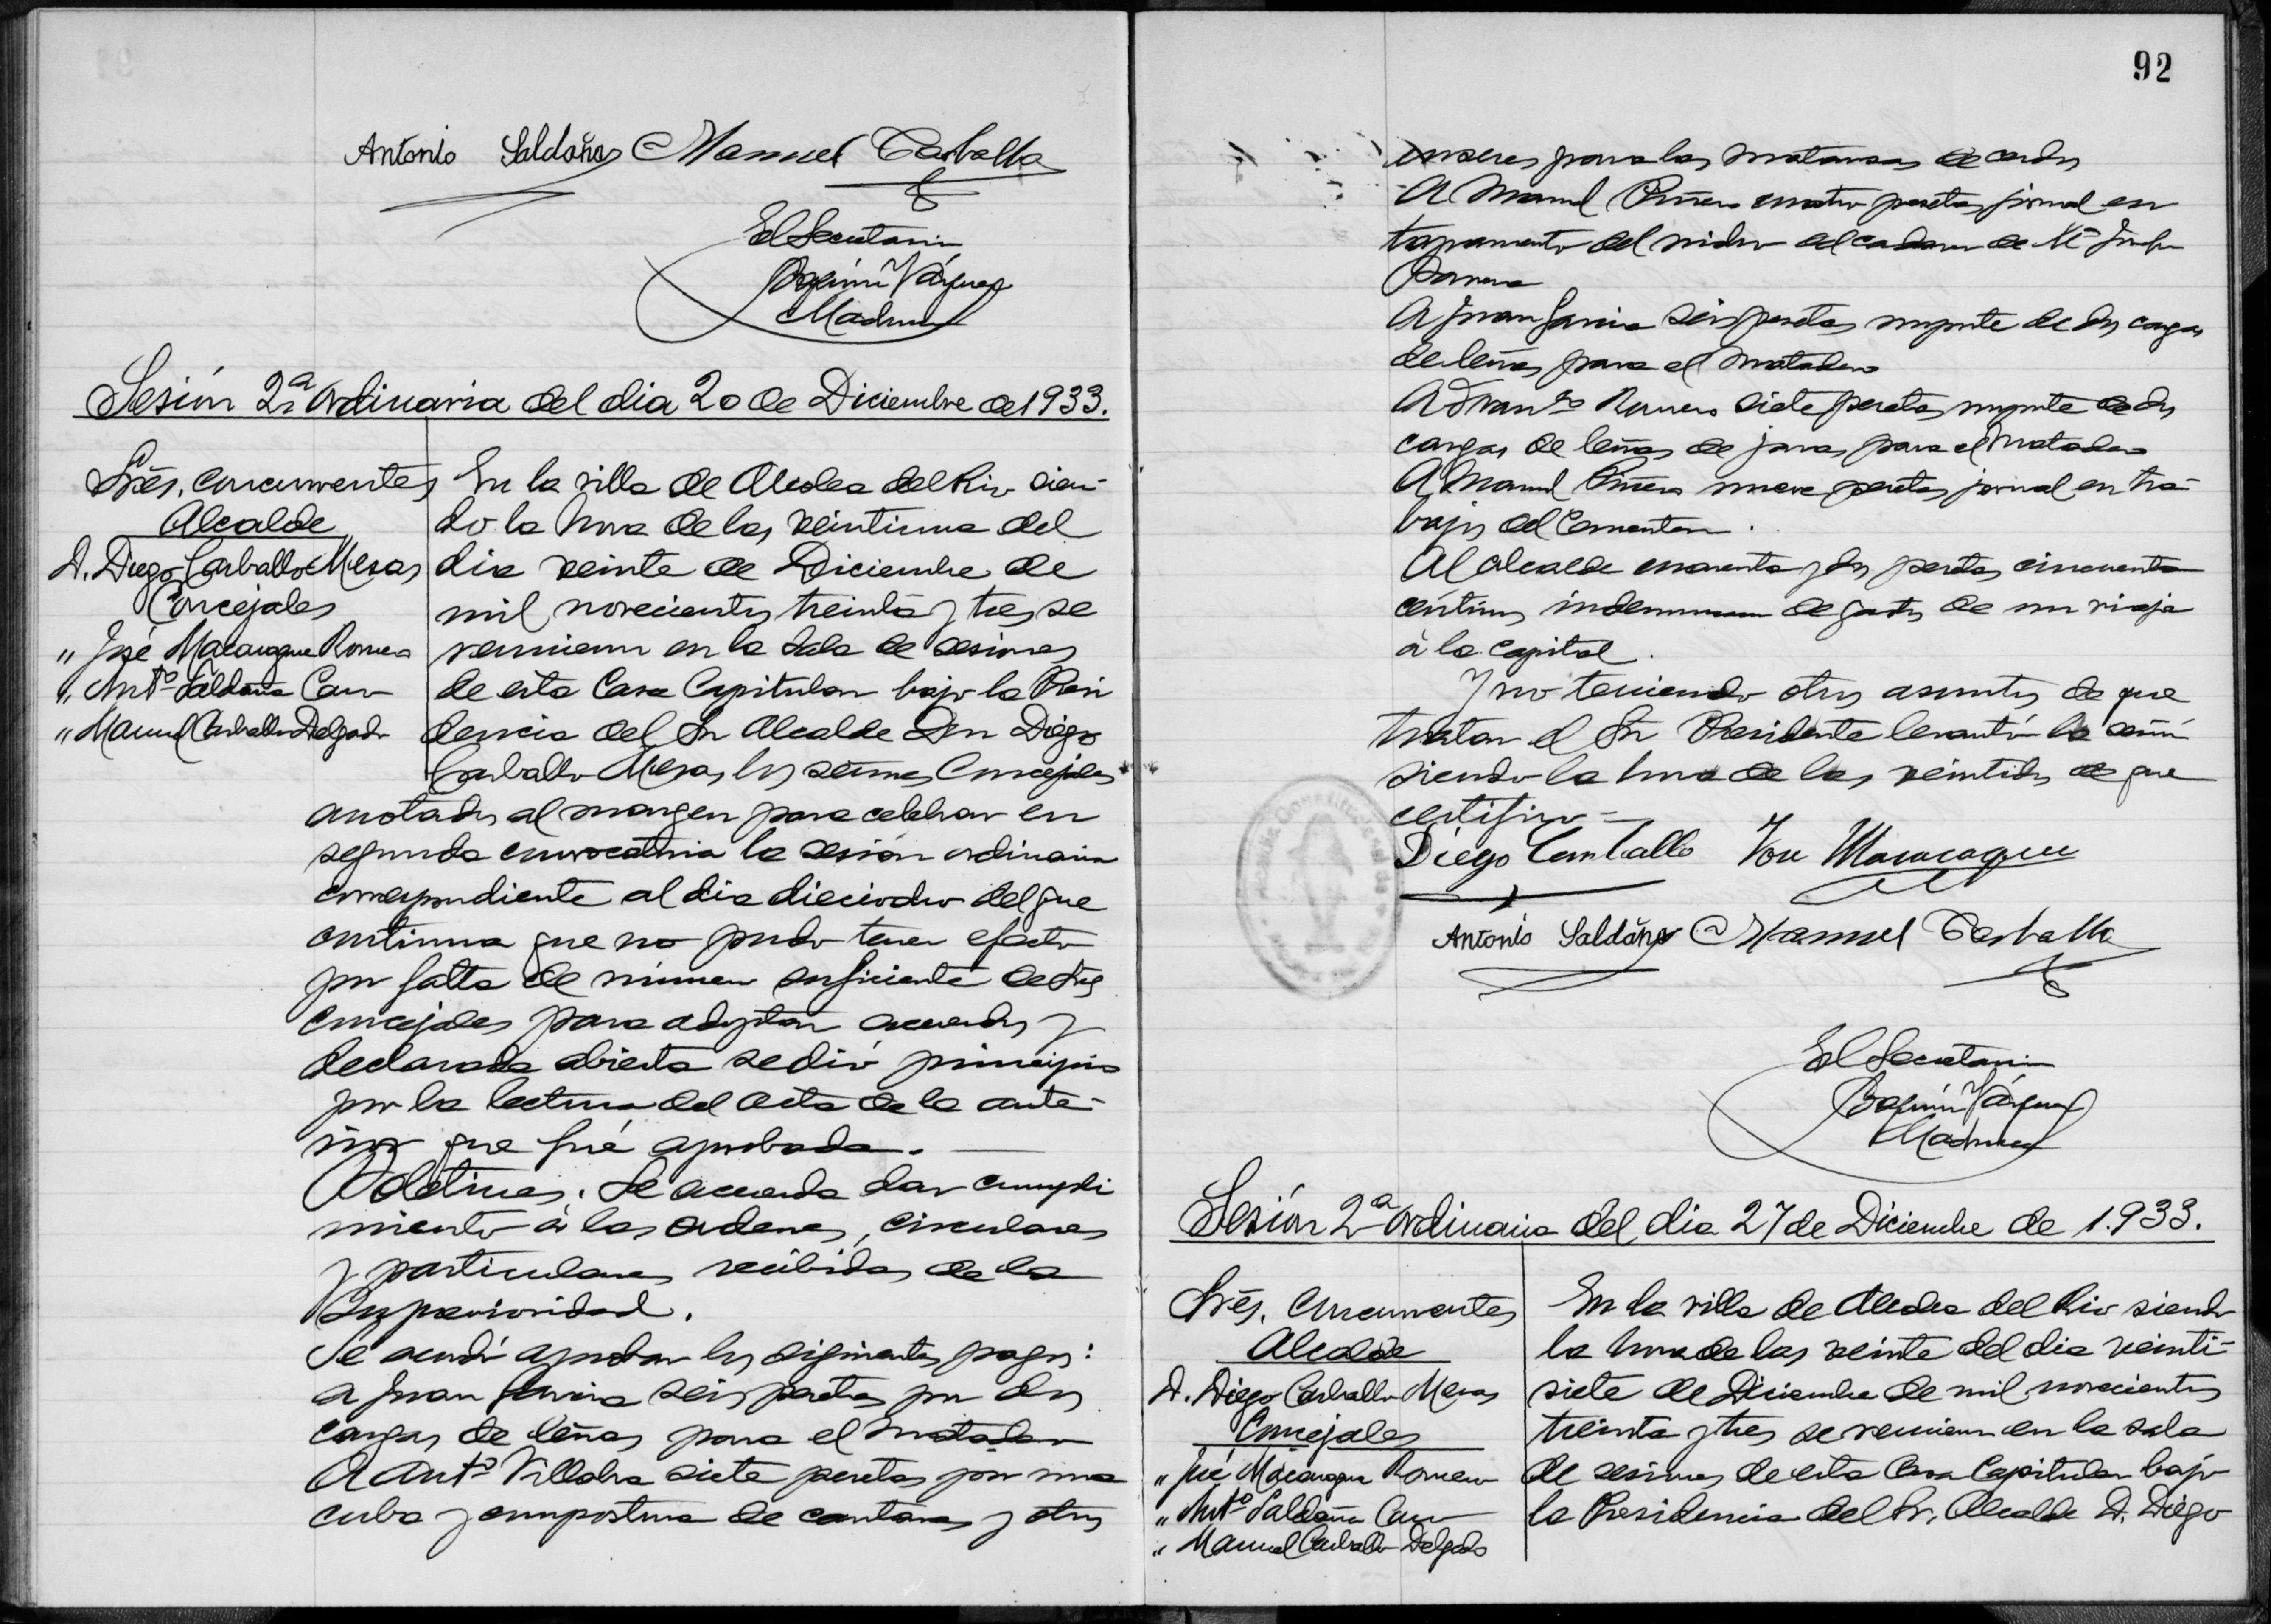 Antonio Saldaña Manuel Carballo
El Secretario
Joaquín Vázquez
Sesión 2ª ordinaria del dia 20 de Diciembre de 1933.
Sres. Concurrentes
Alcalde
D. Diego Carballo Meras
Concejales
" José Macarague Romero
" Antº Saldaña Caro
" Manuel Carballo Delgado
En la villa de Alcolea del Rio sien-
do la hora de las veintiuna del
dia veinte de Diciembre de
mil novecientos treinta y tres se
reunieron en la Sala de sesiones
de esta Casa Capitular bajo la Presi
dencia del Sr Alcalde Don Diego
Carballo Meras, los señores Concejales
anotados al margen para celebrar en
segunda convocatoria la sesión ordinaria
correspondiente al dia dieciocho del que
continua que no pudo tener efecto
por falta de número suficiente de Sres
Concejales para adoptar acuerdos y
declarada abierta se dió principio
por la lectura del acta de la ante-
rior que fué aprobada.
Boletines. Se acuerda dar cumpli
miento à las ordenes, circulares
y particulares recibidas de la
Superioridad.
Se acordó aprobar los siguientes pagos:
a Juan Garcia seis pesetas por dos
cargas de leñas para el matadero
A Antº Villalba siete pesetas por una
cuba y compostura de cantaras y otros
92
enseres para las matanzas de cerdos
A Manuel Piñero cuatro pesetas jornal en
tapamento del nicho del cadaver de Mª Josefa
A Juan Garcia seis pesetas importe de dos cargas
de leñas para el Matadero
A Franco Romero siete pesetas importe de dos
cargas de leñas de jaras para el Matadero
A Manuel Piñero nueve pesetas jornal en tra-
bajos del Cementerio.
Al Alcalde cuarenta y dos pesetas cincuenta
céntimos indemnizacion de gastos de un viaje
à la Capital.
Y no teniendo otros asuntos de que
tratar el Sr Presidente levantó la sesión
siendo la hora de las veintidos de que
certifico =
Diego Carballo José Macarague
Antonio Saldaña Manuel Carballo
El Secretario
Joaquín Vázquez
Sesión 2ª ordinaria del dia 27 de Diciembre de 1.933.
Sres. Concurrentes
Alcalde
D. Diego Carballo Meras
Concejales
" José Macarague Romero
" Antº Saldaña Caro
" Manuel Carballo Delgado
En la villa de Alcolea del Rio siendo
la hora de las veinte del dia veinti-
siete de Diciembre de mil novecientos
treinta y tres se reunieron en la sala
de sesiones de esta Casa Capitular bajo
la Presidencia del Sr. Alcalde D. Diego